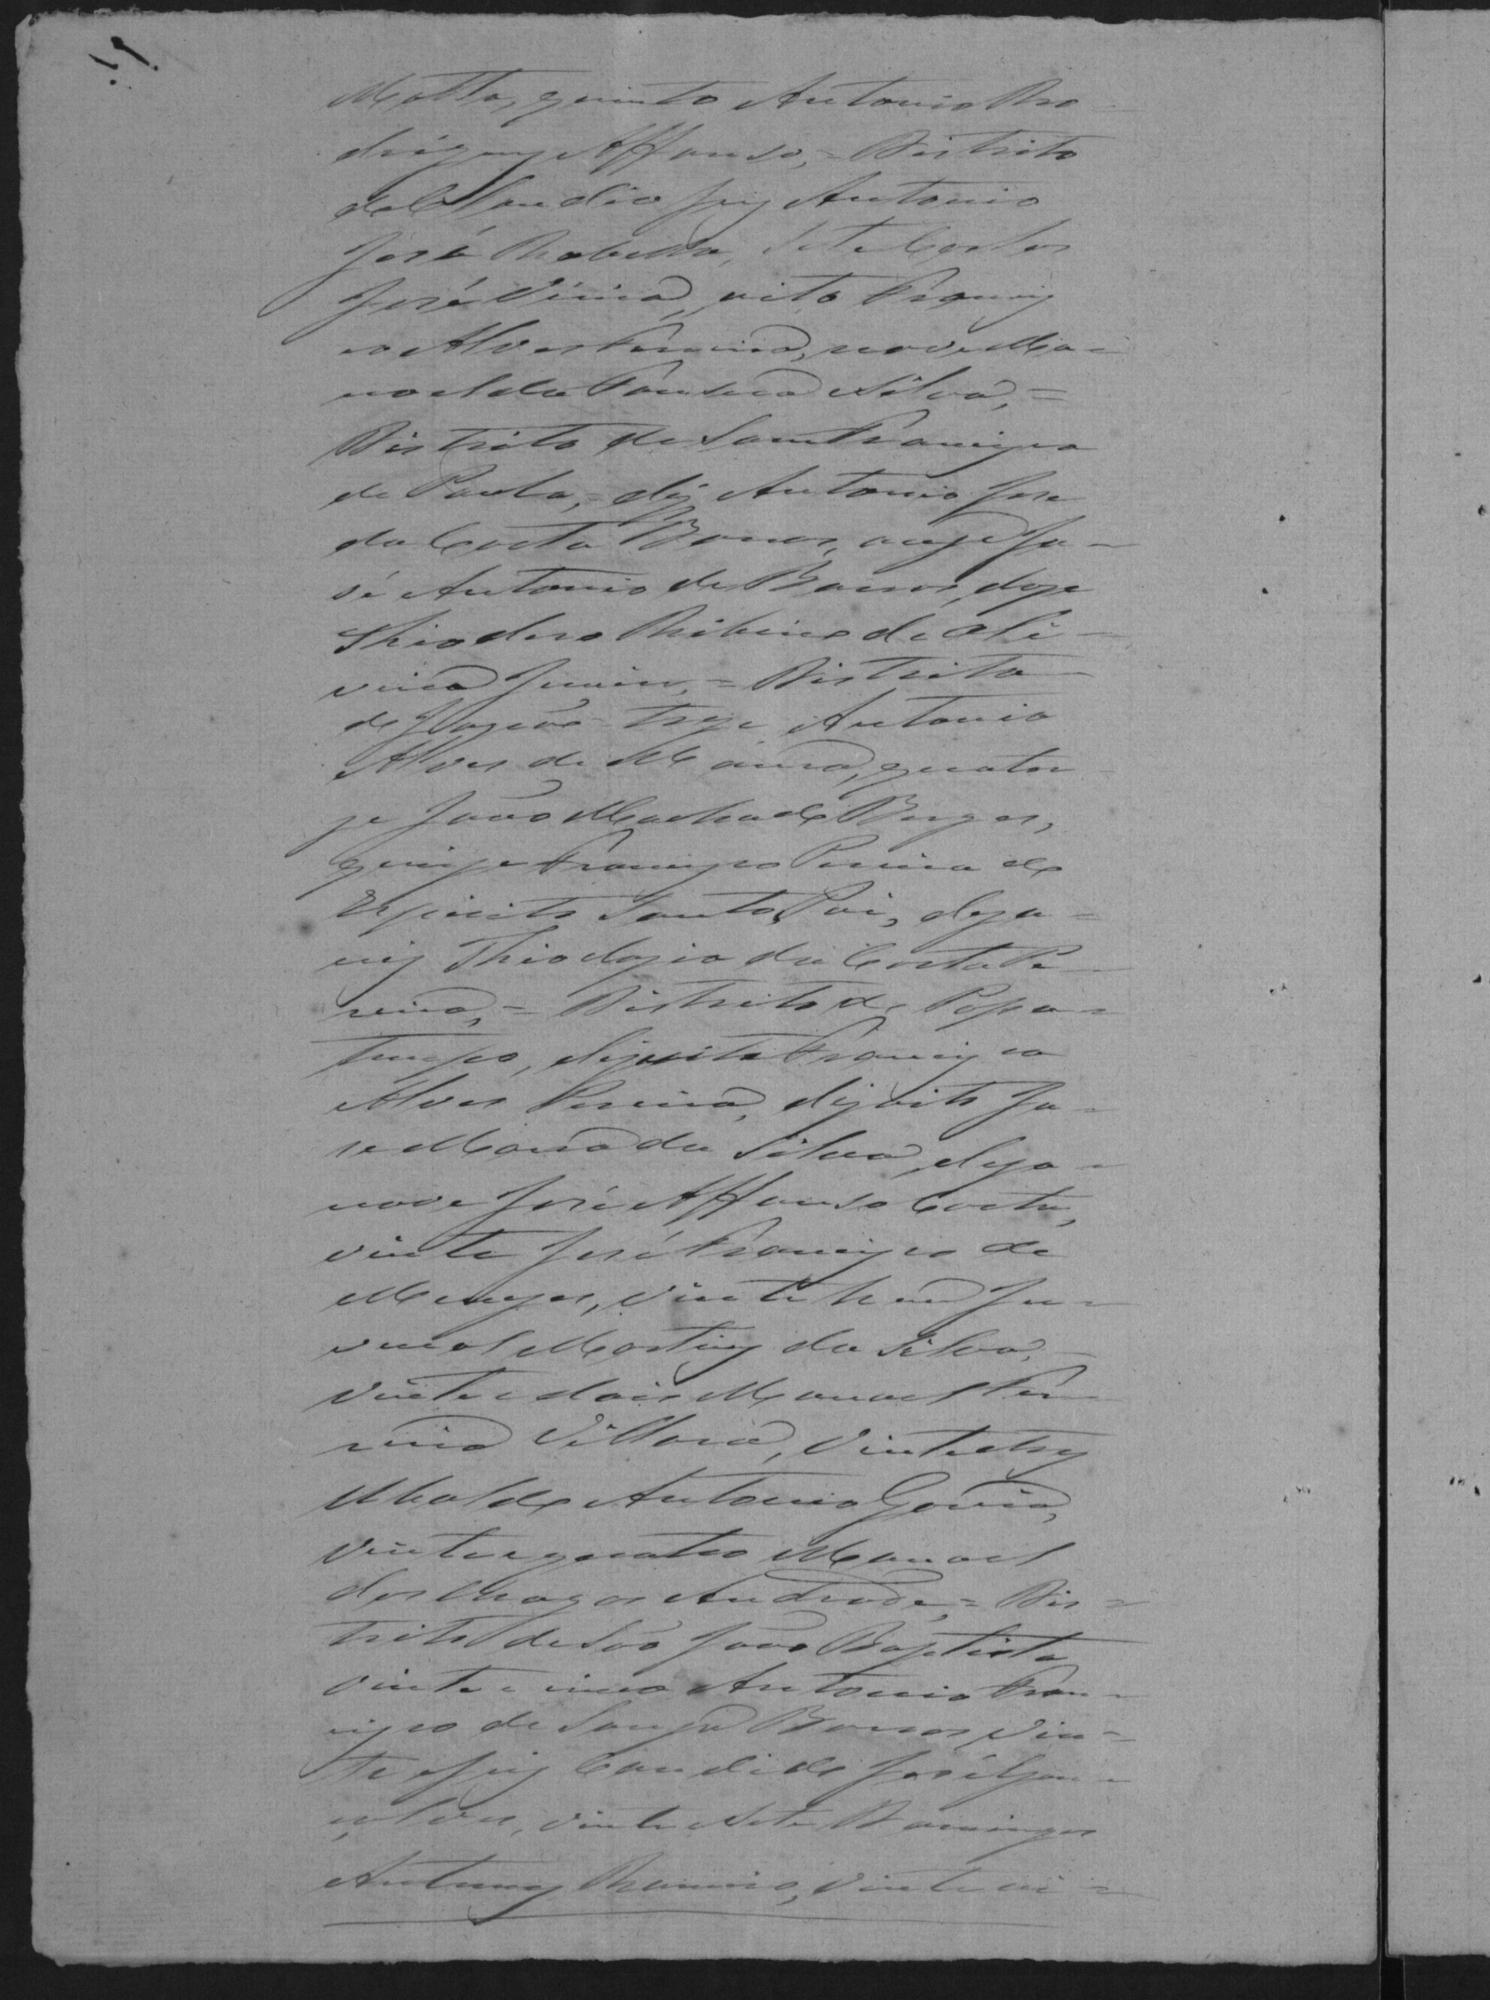 Motta, quinto Antonio Ro-
drigues Affonso, = Distrito
de Claudio seis Antonio
José Rabello, Sete Carlos
José Vieira, oito Francis
co Alves Ferreira, nove Ma-
noel da Fonseca e Silva, =
Distrito de Sam Francisco
de Paula, = dez Antonio José
da Costa Barros, onze Jo-
sé Antonio de Barros, doze
Theodoro Ribeiro de Oli-
veira Junior, = Distrito
de treze Antonio
Alves de Moura, quator
ze João Machado Borges,
quinze Francisco Pereira do
Espirito Santo, Pai, deza-
seis Theodozio da Costa Pe-
reira, = Distrito de Passa-
tempo, dezesete Francisco
Alves Pereira, dezoito Jo-
se Maria da Silva, deza-
nove José Affonso Costa,
vinte José Francisco de
Menezes, vinte e hum Ju-
venal Martins da Silva, -
vinte e dois Manoel Fer
reira Villaria, vinte e tres
Antonio Gouvia,
vinte e quatro Manoel
das Chagas Andrade, = Dis-
trito de São João Baptista
vinte e cinco Antonio Fran-
cisco de Souza Barros, vin-
te e seis Candido José Gon-
çalves, vinte e sete Domingos
Antunes vinte oi-